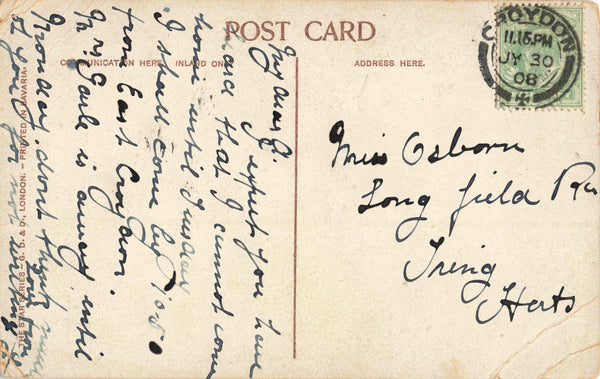 POST CARD
COMMUNICATION HERE. INLAND ONLY
ADDRESS HERE.
CROYDON
11.15 PM
JY 30
08
My dear
I expect you have
heard that I cannot come
home until Tuesday
I shall come by 7.50
from East Croydon.
Mr is away until
Monday. dont think
of you for not
Miss Osborn
Long field Rd
Tring
Herts
THE STAR SERIES - G. D. & D., LONDON. - PRINTED IN BAVARIA.